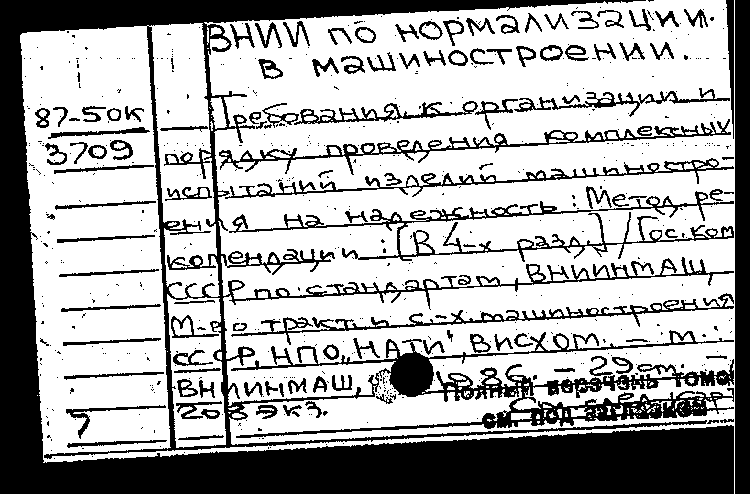 ВНИИ по нормализации
в машиностроении.
87-50К
Требования к организации и
3709
порядку проведения комплексных
испытаний изделий машиностро-
ения на надежность: Метод. ре-
комендации: [В 4-х разд.] / Гос. ком
СССР по стандартам, ВНИИНМАШ,
М-во тракт. и с.-х. машиностроения
СССР, НПО „НАТИ", ВИСХОМ. – М.:
ВНИИНМАШ, 1986. – 29 см. –
Полный перечень томов
208 экз.
см. под заглавием
7